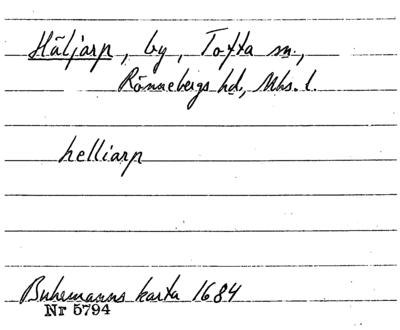 Häljarp, by, Tofta sn.,
Rönnebergs hd., Mhs. l.
helliarp
Buhrmanns karta 1684
Nr 5794